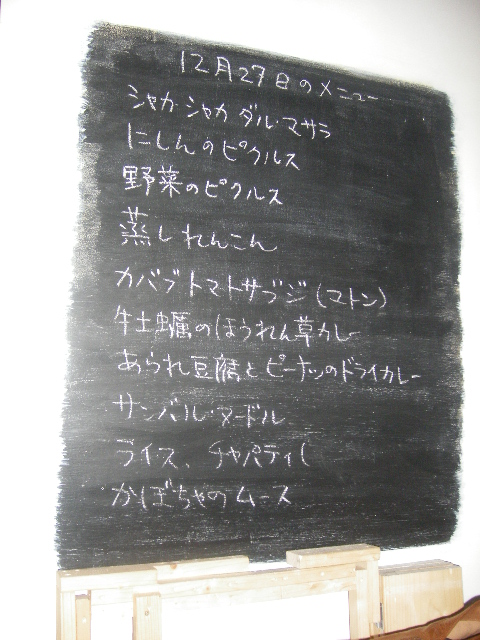 12月27日のメニュー
シャカ・シャカ ダル・マサラ
にしんのピクルス
野菜のピクルス
蒸しれんこん
カバブトマトサブジ(マトン)
牡蠣のほうれん草カレー
あられ豆腐とピーナッツのドライカレー
サンバル・ヌードル
ライス、チャパティ(
かぼちゃのムース